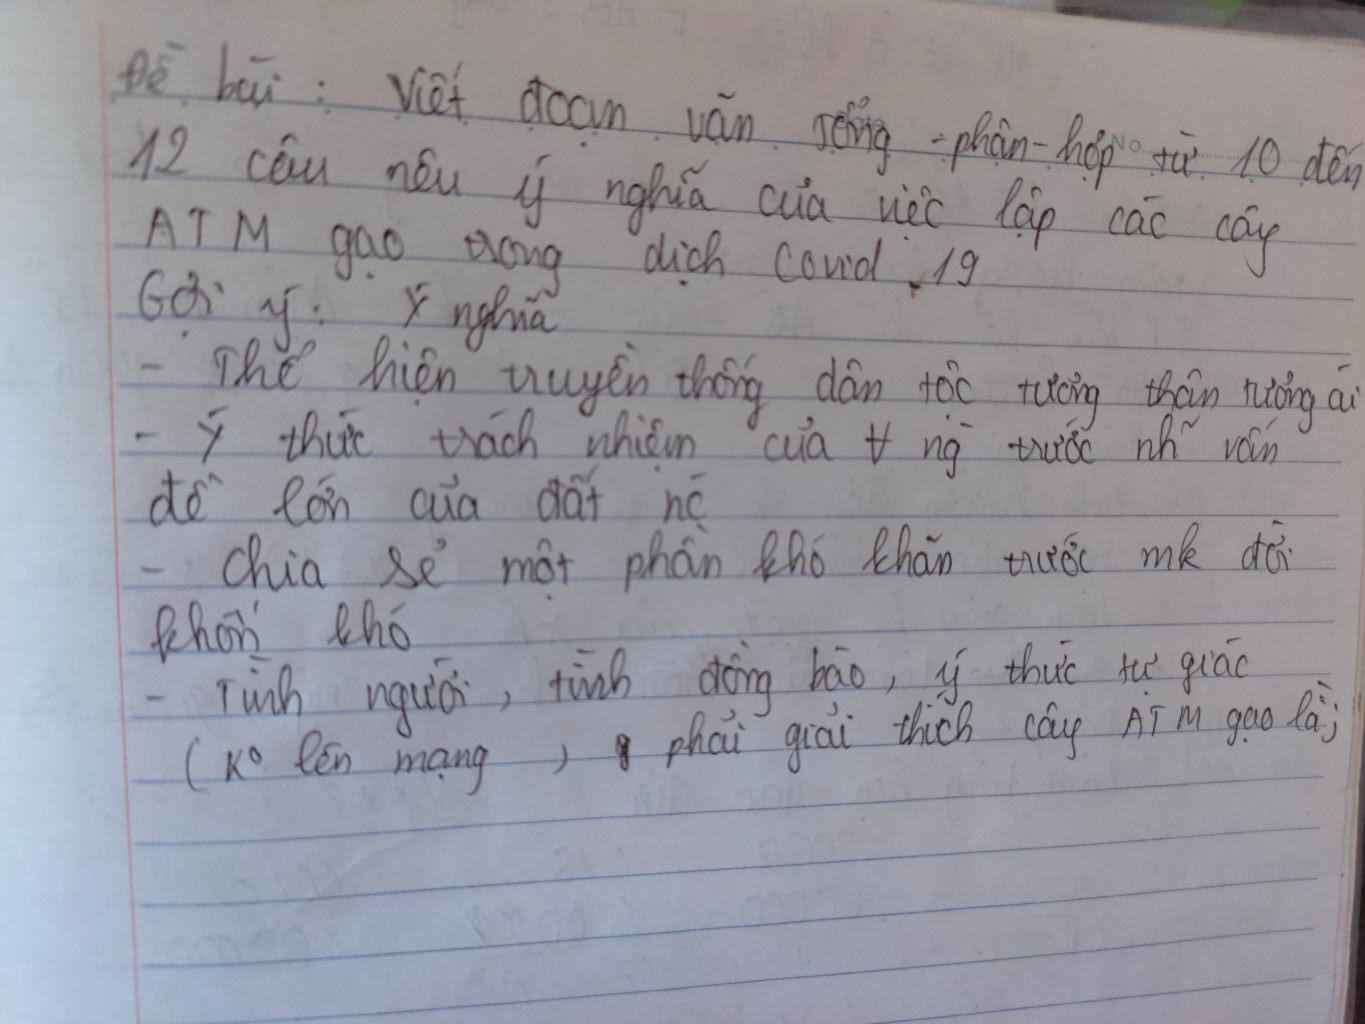 Đề bài : Viết đoạn văn tổng - phân - hợp từ 10 đến
12 câu nêu ý nghĩa của việc lập các cây
ATM gạo trong dịch Covid 19
Gợi ý : Ý nghĩa
- Thể hiện truyền thống dân tộc tương thân tương ái
- Ý thức trách nhiệm của ng trước nh~ vấn
đề lớn của đất nc
- Chia sẻ một phần khó khăn trước mk đời
khốn khó
- Tình người, tình đồng bào, ý thức tự giác
(Ko lên mạng , phải giải thích cây ATM gạo là)